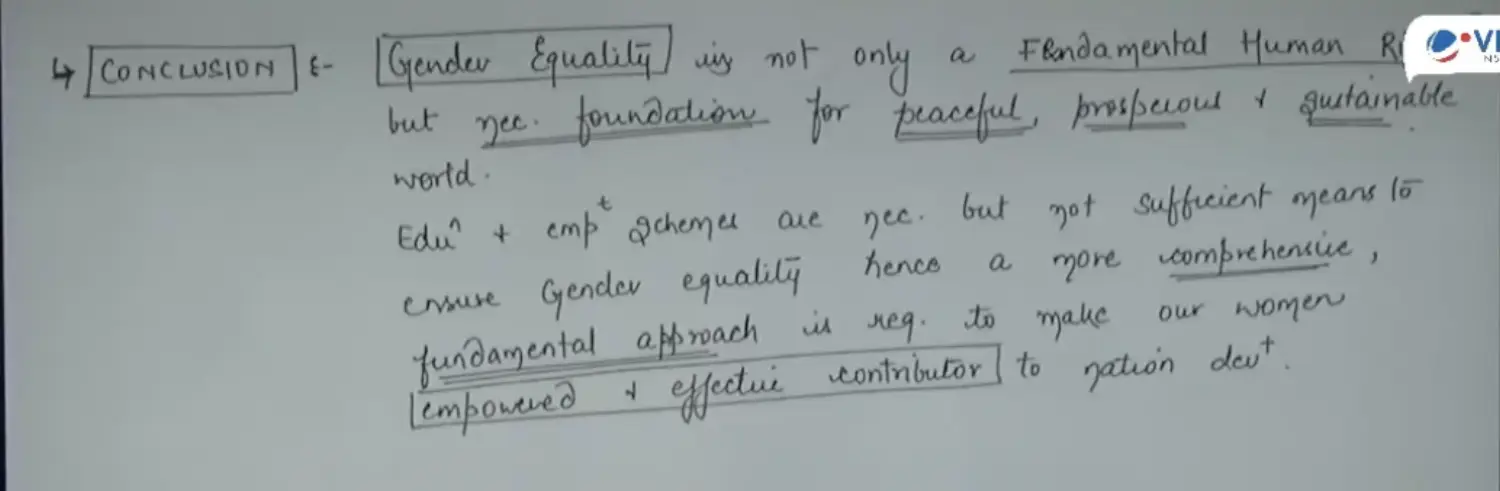 ↳ CONCLUSION :- Gender Equality is not only a Fundamental Human R
but nec. foundation for peaceful, prosperous & sustainable
world.
Eduⁿ + empᵗ schemes are nec. but not sufficient means to
ensure Gender equality hence a more comprehensive,
fundamental approach is req. to make our women
empowered & effective contributor to nation devᵗ.
VI
NS